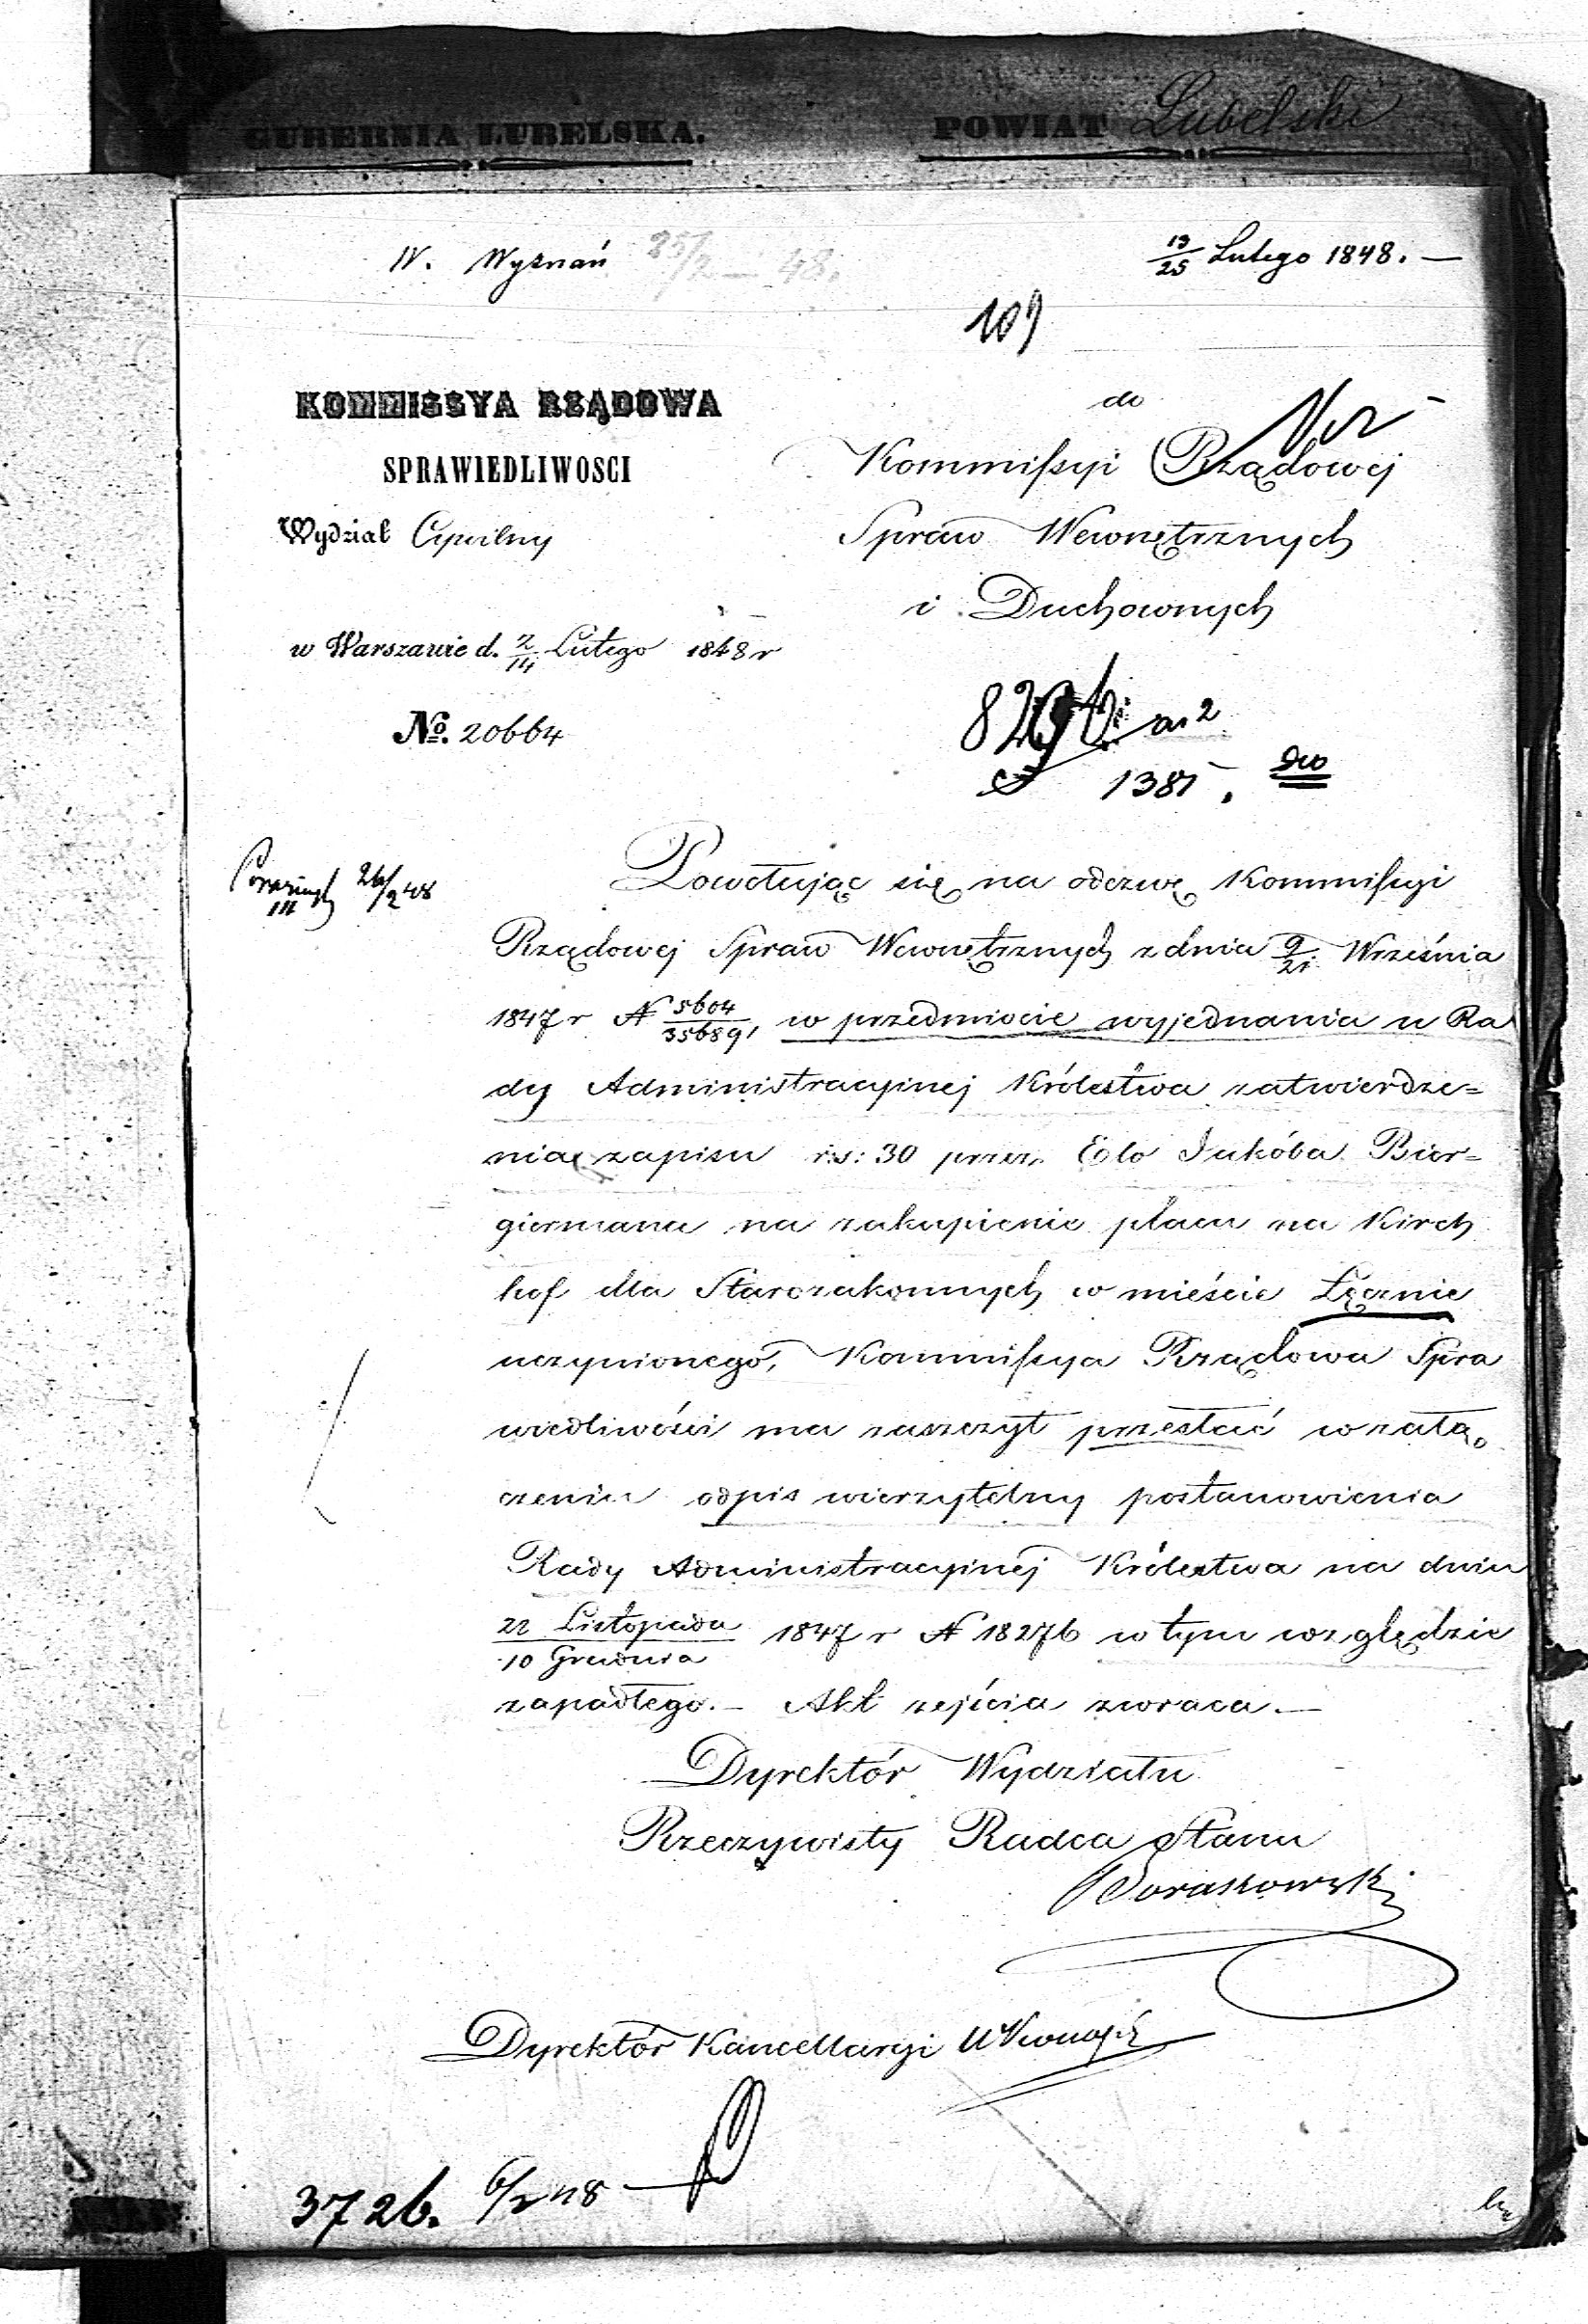 GUBERNIA LUBELSKA. POWIAT Lubelski
IV. Wyznań 25/2 — 48. 13/25 Lutego 1848. —
109
KOMMISSYA RZĄDOWA
SPRAWIEDLIWOSCI
Wydział Cywilny
w Warszawie d. 2/14 Lutego 1848 r
No. 20664
do
Kommissyi Rządowej
Spraw Wewnętrznych
i Duchownych
1381.
26/2 48
Powołując się na odezwę Kommissyi
Rządowej Spraw Wewnętrznych z dnia 9/21 Września
1847 r N 5604/35689, w przedmiocie wyjednania u Ra
dy Administracyjnej Królestwa zatwierdze=
nia zapisu rs: 30 przez Elo Jakóba Bier=
giermana na zakupienie placu na Kirch
hof dla Starozakonnych w mieście Łęcznie
uczynionego, Kommissya Rządowa Spra
wiedliwości ma zaszczyt przesłać w załą
czeniu odpis wierzytelny postanowienia
Rady Administracyjnej Królestwa na dniu
22 Listopada/10 Grudnia 1847 r N 18276 w tym względzie
zapadłego. — Akt zejścia zwraca. —
Dyrektór Wydziału
Rzeczywisty Radca Stanu
Dyrektór Kancellaryi
3726. 6/2 48